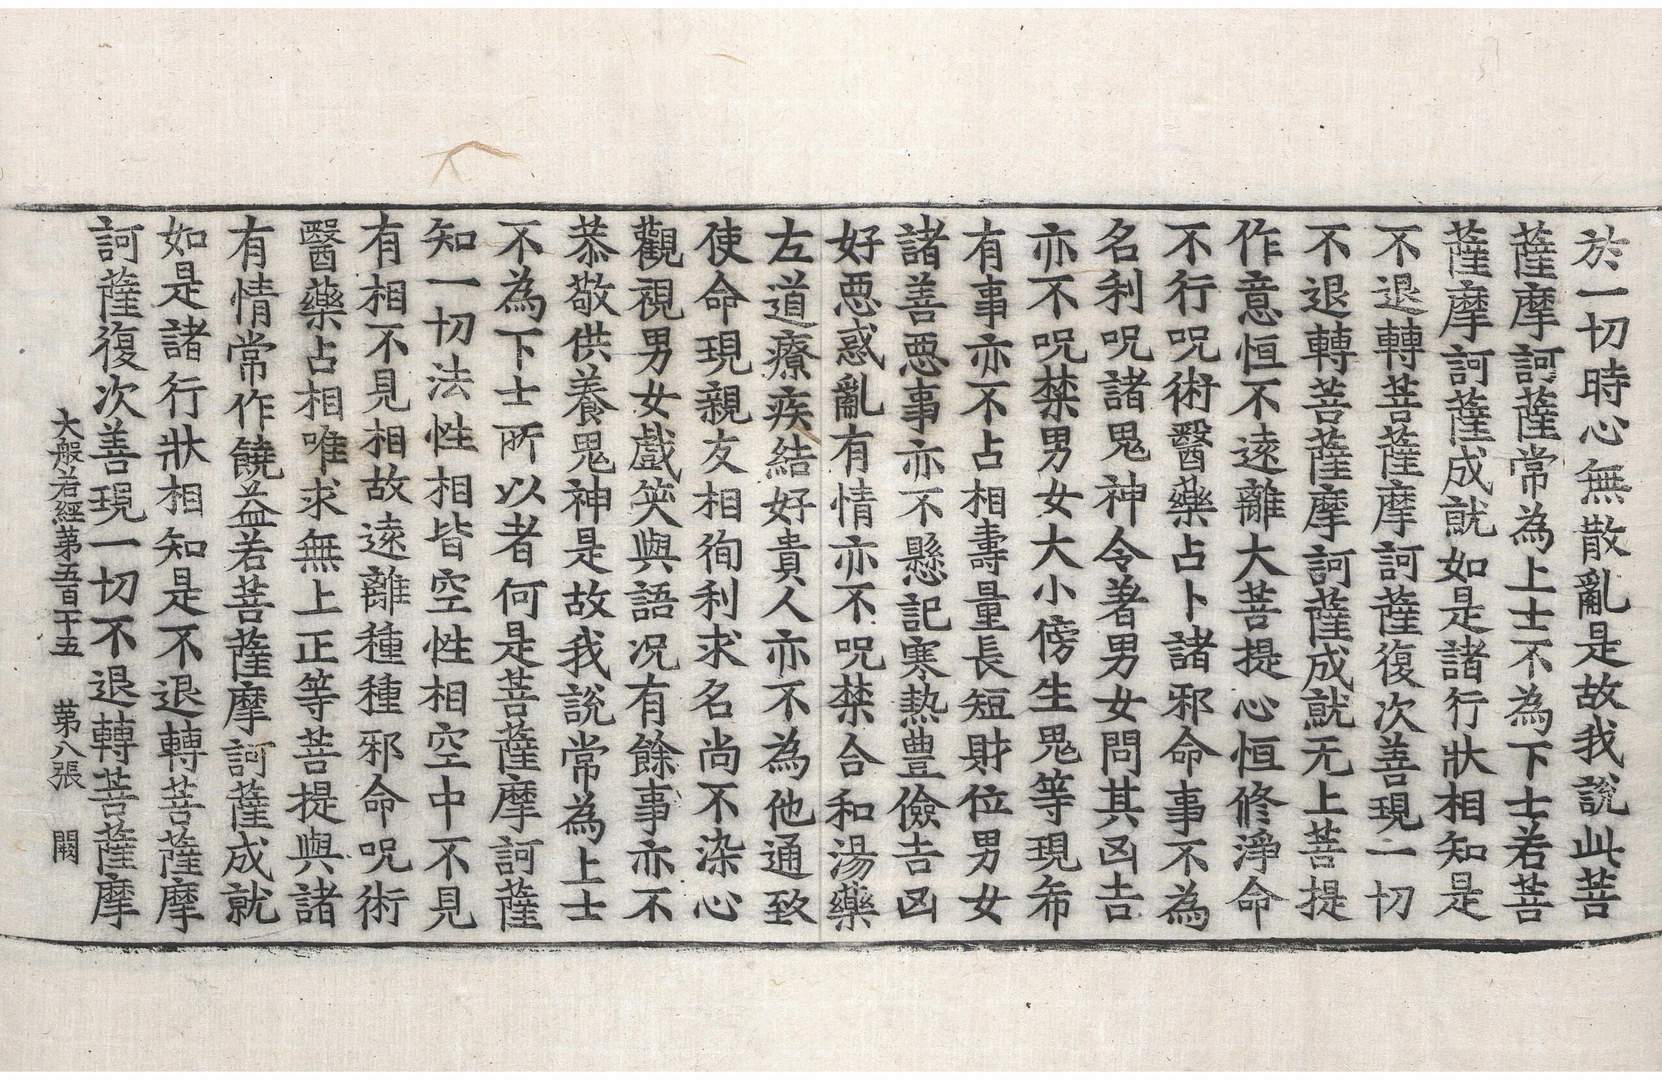 於一切時心無散亂是故我說此菩
薩摩訶薩常為上士不為下士若菩
薩摩訶薩成就如是諸行狀相知是
不退轉菩薩摩訶薩復次善現一切
不退轉菩薩摩訶薩成就无上菩提
作意恒不遠離大菩提心恒修淨命
不行呪術醫藥占卜諸邪命事不為
名利呪諸鬼神令著男女問其凶吉
亦不呪禁男女大小傍生鬼等現希
有事亦不占相壽量長短財位男女
諸善惡事亦不懸記寒熱豊儉吉凶
好惡惑亂有情亦不呪禁合和湯藥
左道療疾結好貴人亦不為他通致
使命現親友相徇利求名尚不染心
觀視男女戲笑與語況有餘事亦不
恭敬供養鬼神是故我說常為上士
不為下士所以者何是菩薩摩訶薩
知一切法性相皆空性相空中不見
有相不見相故遠離種種邪命呪術
醫藥占相唯求無上正等菩提與諸
有情常作饒益若菩薩摩訶薩成就
如是諸行狀相知是不退轉菩薩摩
訶薩復次善現一切不退轉菩薩摩
大般若經第五百十五　第八張　闕